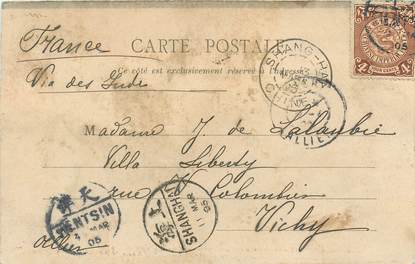 France
CARTE POSTALE
Ce côté est exclusivement réservé à l'adresse
Via des Inde
SHANG-HAI
CHINE
4
Madame J. de Lalaubie
Villa Liberty
ALLIER
rue Colombier
Vichy
Allier
天津
TIENTSIN
MAR
05
上海
SHANGHAI
11
MAR
05